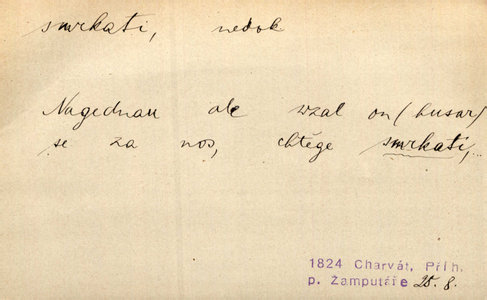 smrkati, nedok
Nagednau ale wzal on (husar)
se za nos, chtěge smrkati,..
1824 Charvát, Příh.
p. Žamputáře 25. 8.